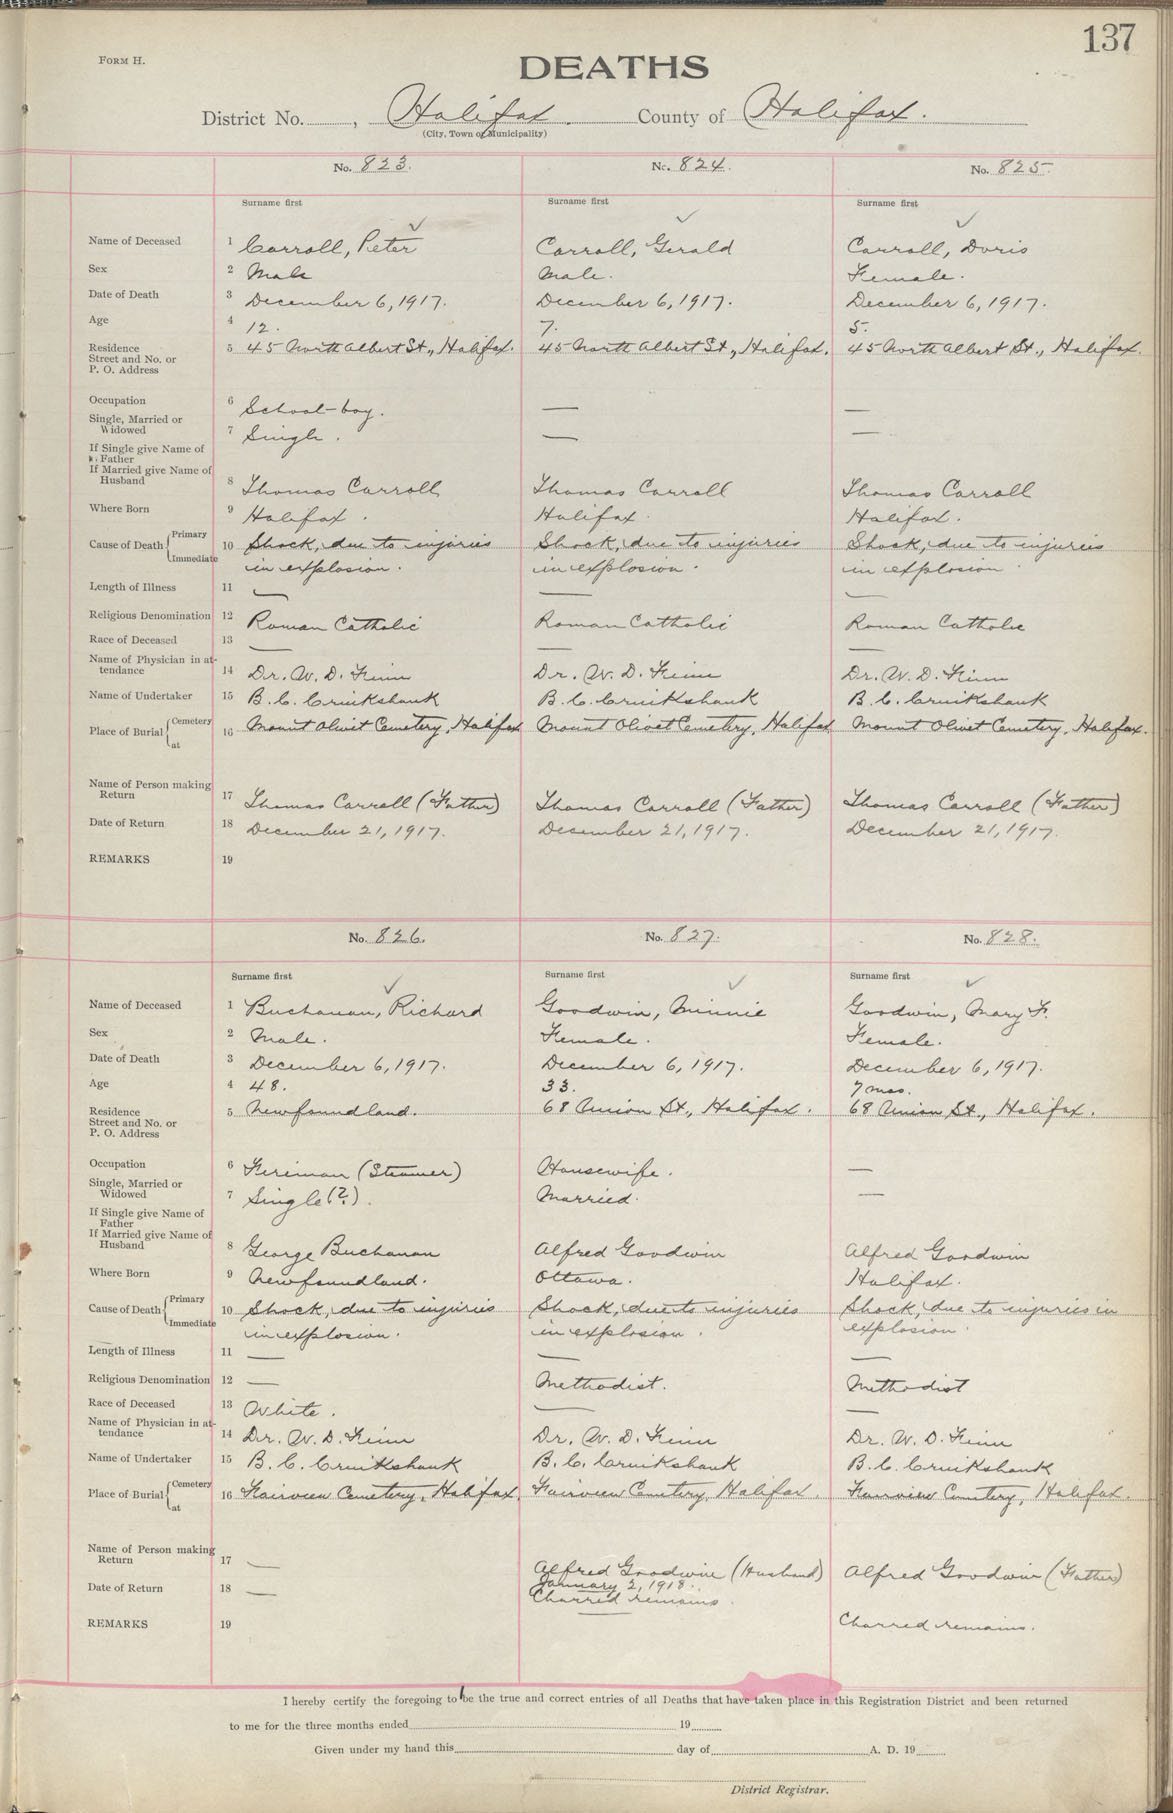 137
FORM H.
DEATHS
District No. , Halifax. County of Halifax.
(City, Town or Municipality)
No. 823. No. 824. No. 825.
Surname first Surname first Surname first
Name of Deceased 1 Carroll, Peter Carroll, Gerald Carroll, Doris
Sex 2 Male Male. Female.
Date of Death 3 December 6, 1917. December 6, 1917. December 6, 1917.
Age 4 12. 7. 5.
Residence 5 45 North Albert St., Halifax. 45 North Albert St., Halifax. 45 North Albert St., Halifax.
Street and No. or
P. O. Address
Occupation 6 School-boy. — —
Single, Married or
Widowed 7 Single. — —
If Single give Name of
Father
If Married give Name of
Husband 8 Thomas Carroll Thomas Carroll Thomas Carroll
Where Born 9 Halifax. Halifax. Halifax.
Cause of Death { Primary
Immediate 10 Shock, due to injuries Shock, due to injuries Shock, due to injuries
in explosion. in explosion. in explosion.
Length of Illness 11 — — —
Religious Denomination 12 Roman Catholic Roman Catholic Roman Catholic
Race of Deceased 13 — — —
Name of Physician in at-
tendance 14 Dr. W. D. Finn Dr. W. D. Finn Dr. W. D. Finn
Name of Undertaker 15 B. C. Cruikshank B. C. Cruikshank B. C. Cruikshank
Place of Burial { Cemetery
at 16 Mount Olivet Cemetery, Halifax Mount Olivet Cemetery, Halifax Mount Olivet Cemetery, Halifax.
Name of Person making
Return 17 Thomas Carroll (Father) Thomas Carroll (Father) Thomas Carroll (Father)
Date of Return 18 December 21, 1917. December 21, 1917. December 21, 1917.
REMARKS 19
No. 826. No. 827. No. 828.
Surname first Surname first Surname first
Name of Deceased 1 Buchanan, Richard Goodwin, Minnie Goodwin, Mary F.
Sex 2 Male. Female. Female.
Date of Death 3 December 6, 1917. December 6, 1917. December 6, 1917.
Age 4 48. 33. 7 mos.
Residence 5 Newfoundland. 68 Union St., Halifax. 68 Union St., Halifax.
Street and No. or
P. O. Address
Occupation 6 Fireman (Steamer) Housewife. —
Single, Married or
Widowed 7 Single (?). Married. —
If Single give Name of
Father
If Married give Name of
Husband 8 George Buchanan Alfred Goodwin Alfred Goodwin
Where Born 9 Newfoundland. Ottawa. Halifax.
Cause of Death { Primary
Immediate 10 Shock, due to injuries Shock, due to injuries Shock, due to injuries in
in explosion. in explosion. explosion.
Length of Illness 11 — — —
Religious Denomination 12 — Methodist. Methodist
Race of Deceased 13 White. — —
Name of Physician in at-
tendance 14 Dr. W. D. Finn Dr. W. D. Finn Dr. W. D. Finn
Name of Undertaker 15 B. C. Cruikshank B. C. Cruikshank B. C. Cruikshank
Place of Burial { Cemetery
at 16 Fairview Cemetery, Halifax. Fairview Cemetery, Halifax. Fairview Cemetery, Halifax.
Name of Person making
Return 17 — Alfred Goodwin (Husband) Alfred Goodwin (Father)
Date of Return 18 — January 2, 1918.
Charred remains.
REMARKS 19 — Charred remains.
I hereby certify the foregoing to be the true and correct entries of all Deaths that have taken place in this Registration District and been returned
to me for the three months ended 19
Given under my hand this day of A. D. 19
District Registrar.